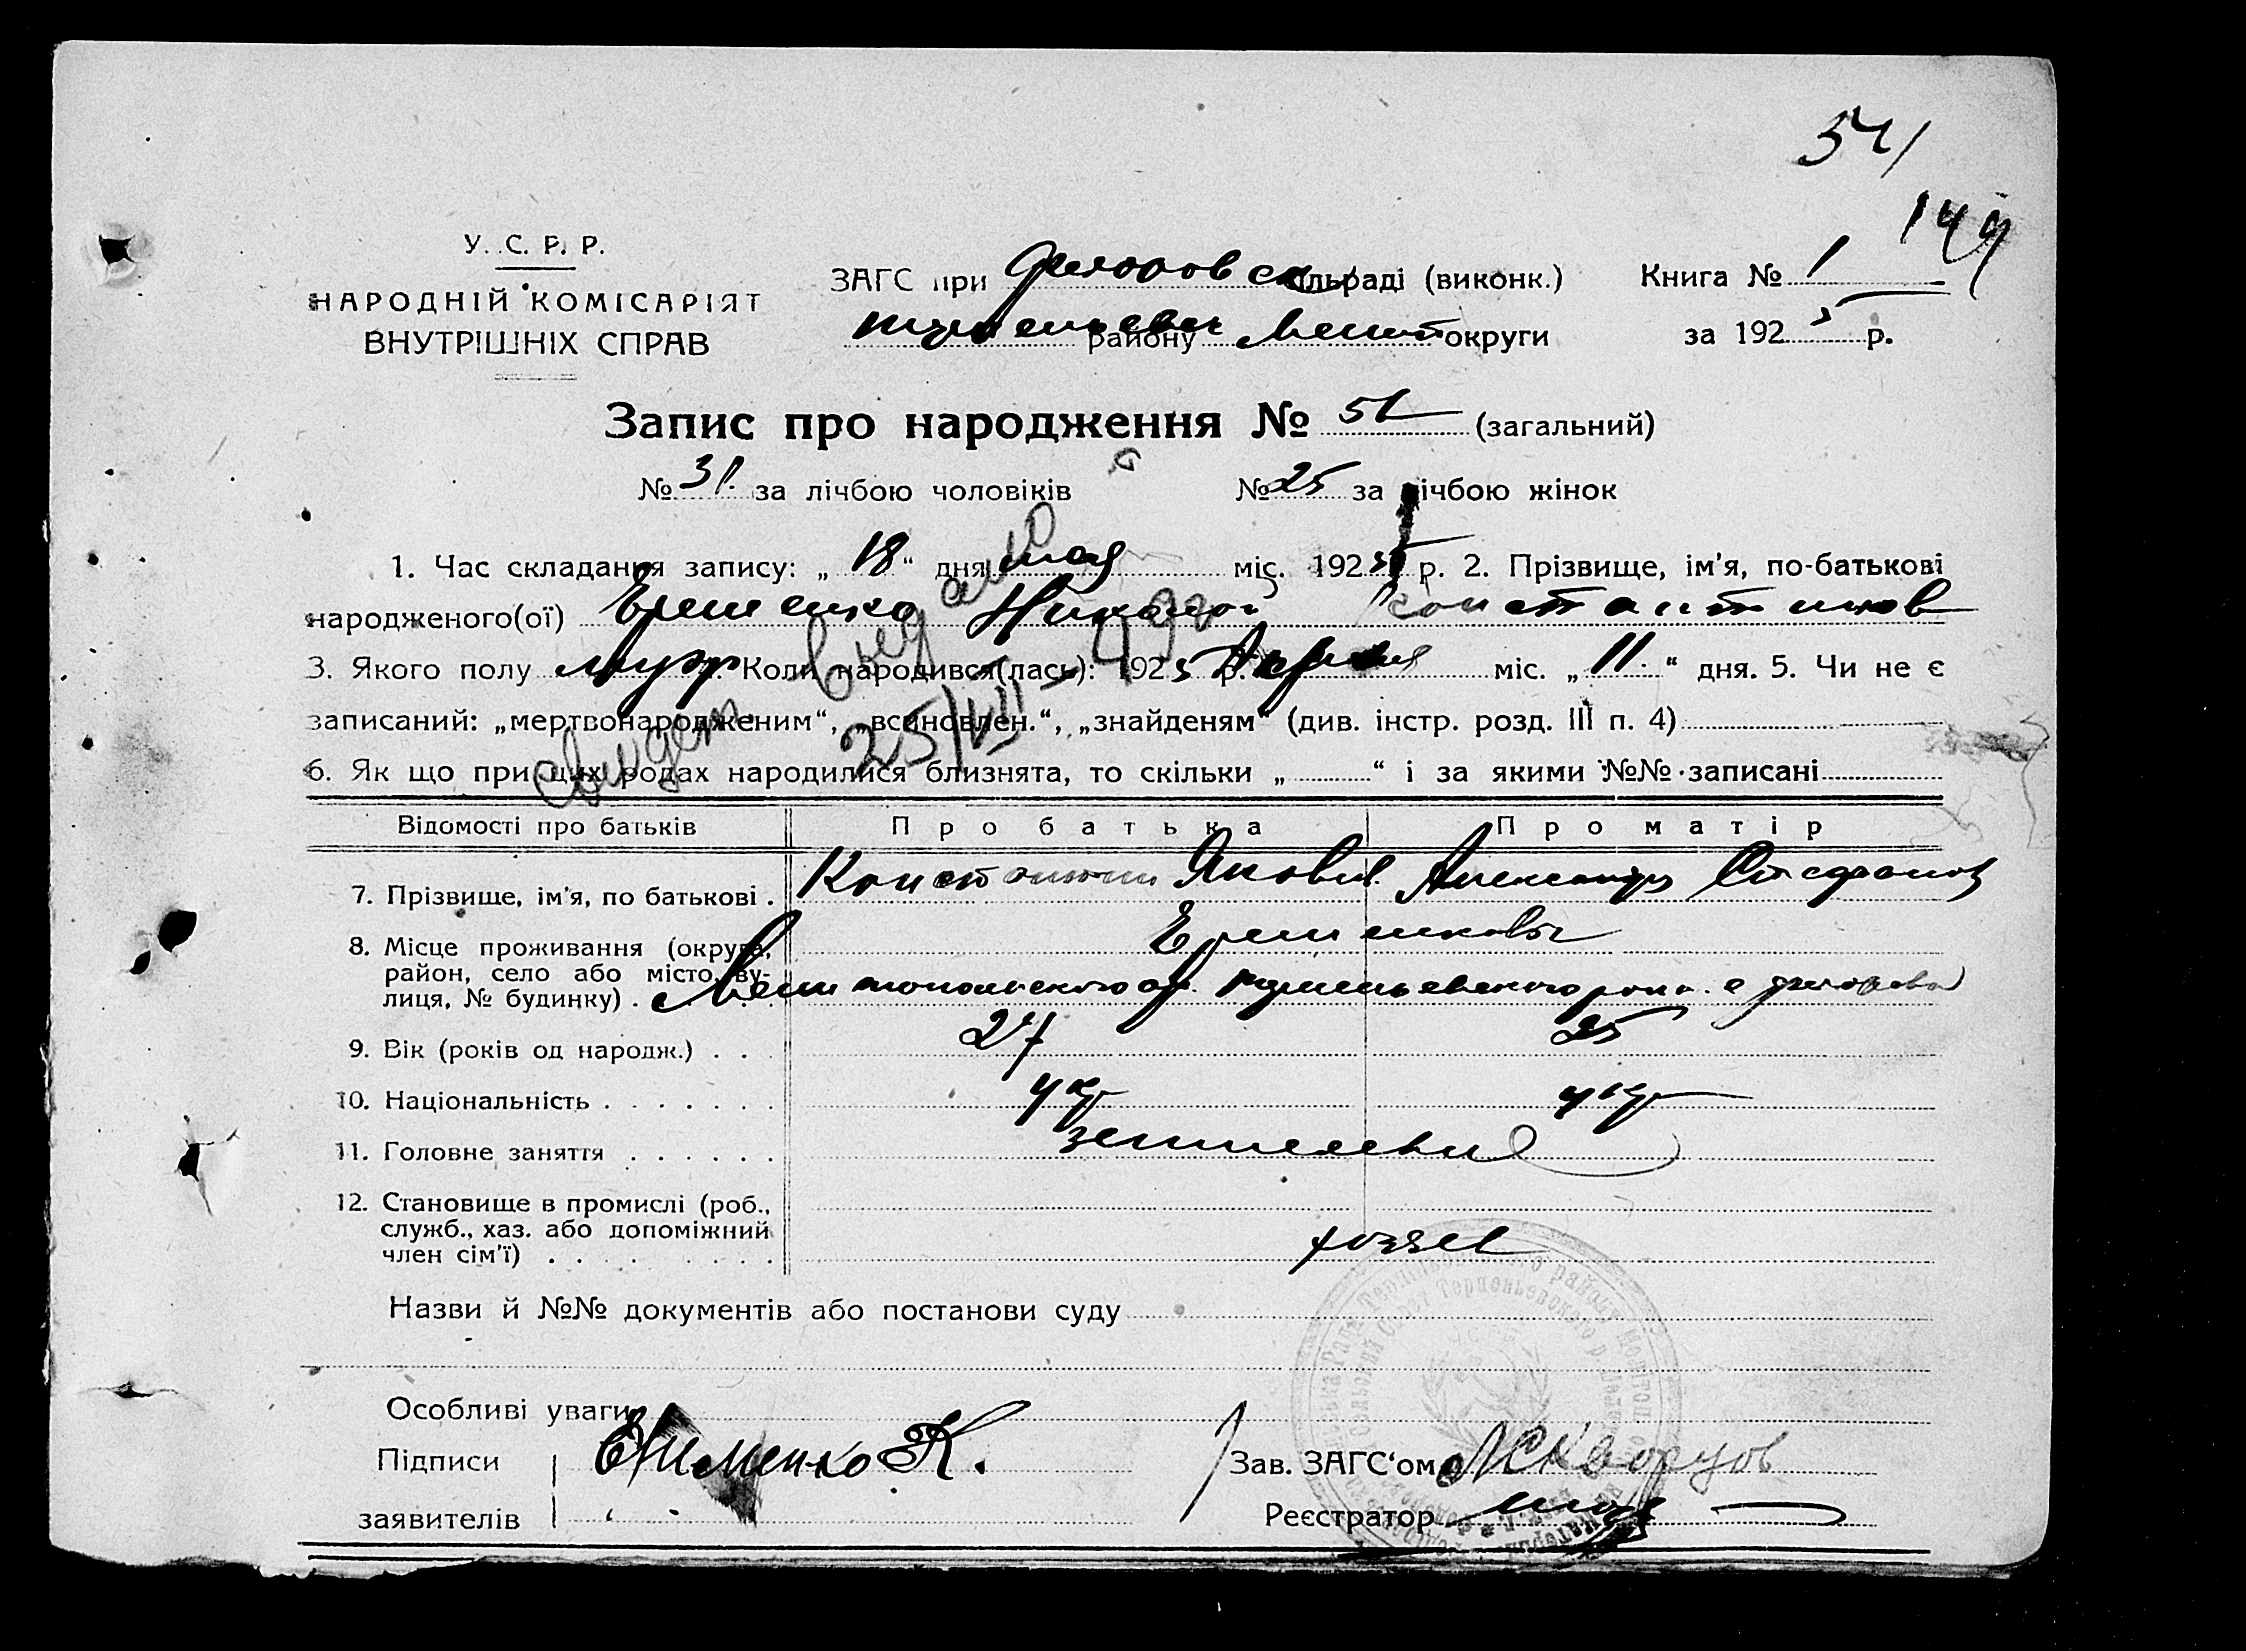 54
149
У. С. Р. Р.
НАРОДНІЙ КОМІСАРІЯТ
ВНУТРІШНІХ СПРАВ
ЗАГС при сільраді (виконк.) Книга № 1
району Мелит округи за 1925 р.
Запис про народження № (загальний)
№ 31 за лічбою чоловіків № 25 за лічбою жінок
1. Час складання запису: „ 18 “ дня мая міс. 1925 р. 2. Прізвище, ім'я, по-батькові
народженого(ої) Николай Константинов
3. Якого полу муж 4. Коли народився(лась): 1925 р. Апреля міс. „ 11 “ дня. 5. Чи не є
записаний: „мертвонародженим“, „всиновлен.“, „знайденям“ (див. інстр. розд. III п. 4)
6. Як що при цих родах народилися близнята, то скільки „ “ і за якими №№ записані
Свидет. выдано
25/VII-49г
Відомості про батьків Про батька Про матір
7. Прізвище, ім'я, по батькові . Константин Яковл. Александра Стефанов
8. Місце проживання (округа,
район, село або місто, ву-
лиця, № будинку) . Мелитопольского окр. с
9. Вік (років од народж.) . . . 27 25
10. Національність . . . . . . . укр укр
11. Головне заняття . . . . . . земледелие
12. Становище в промислі (роб.,
служб., хаз. або допоміжний
член сім'ї) . . . . . . . хозяев
Назви й №№ документів або постанови суду
Особливі уваги
Підписи К. Зав. ЗАГС'ом Скворцов
заявителів Реєстратор